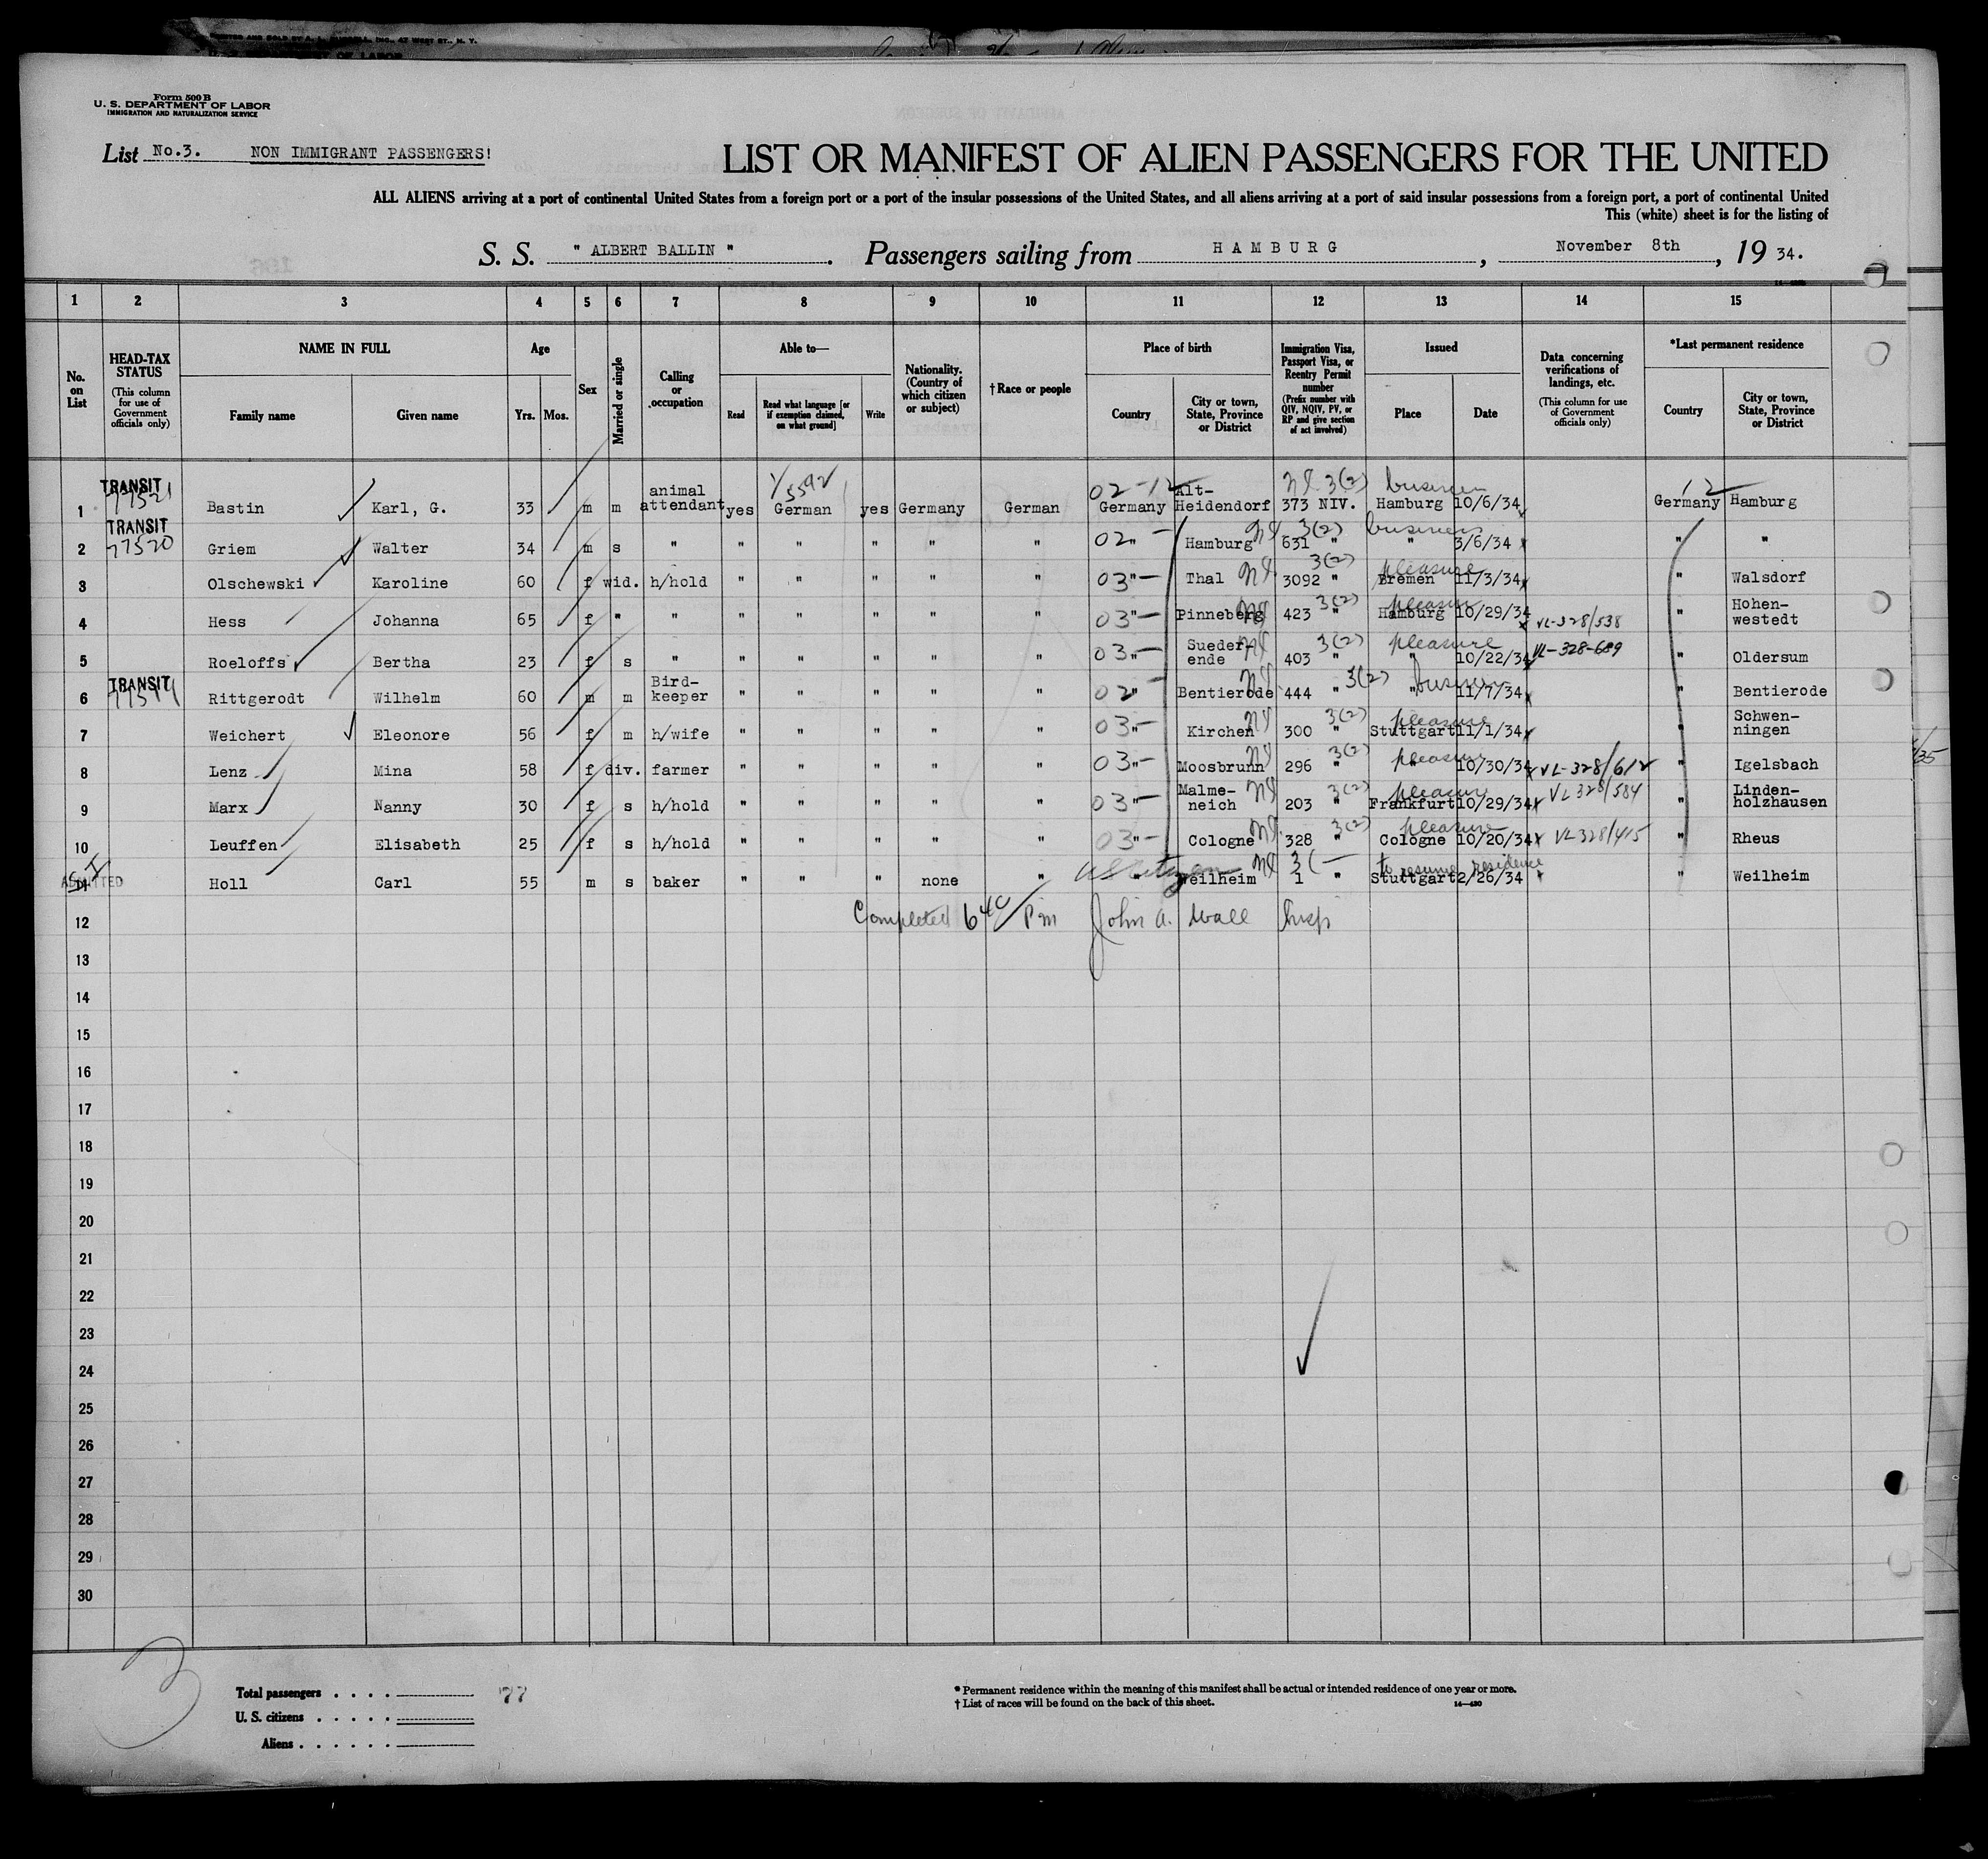 PRINTED AND SOLD BY A. L. RUSSELL, INC., 47 WEST ST., N. Y.
Form 500 B
U. S. DEPARTMENT OF LABOR
IMMIGRATION AND NATURALIZATION SERVICE
List No.3. NON IMMIGRANT PASSENGERS!
LIST OR MANIFEST OF ALIEN PASSENGERS FOR THE UNITED
ALL ALIENS arriving at a port of continental United States from a foreign port or a port of the insular possessions of the United States, and all aliens arriving at a port of said insular possessions from a foreign port, a port of continental United
This (white) sheet is for the listing of
S. S. " ALBERT BALLIN ". Passengers sailing from HAMBURG, November 8th, 19 34.
1 2 3 4 5 6 7 8 9 10 11 12 13 14 15
No. on List
HEAD-TAX STATUS (This column for use of Government officials only)
NAME IN FULL
Family name
Given name
Age
Yrs. Mos.
Sex
Married or single
Calling or occupation
Able to—
Read
Read what language [or if exemption claimed, on what ground]
Write
Nationality. (Country of which citizen or subject)
† Race or people
Place of birth
Country
City or town, State, Province or District
Immigration Visa, Passport Visa, or Reentry Permit number (Prefix number with QIV, NQIV, PV, or RP and give section of act involved)
Issued
Place
Date
Data concerning verifications of landings, etc. (This column for use of Government officials only)
*Last permanent residence
Country
City or town, State, Province or District
1 TRANSIT 77521 Bastin Karl, G. 33 m m animal attendant yes German yes Germany German 02-12 Germany Alt-Heidendorf 373 NIV. 3(2) business Hamburg 10/6/34 12 Germany Hamburg
2 TRANSIT 77520 Griem Walter 34 m s " " " " " " 02 " Hamburg 631 " 3(2) business " 3/6/34 " "
3 Olschewski Karoline 60 f wid. h/hold " " " " " 03 " Thal 3092 " 3(2) pleasure Bremen 11/3/34 " Walsdorf
4 Hess Johanna 65 f " " " " " " " 03 " Pinneberg 423 " 3(2) pleasure Hamburg 10/29/34 VL-328/538 " Hohen-westedt
5 Roeloffs Bertha 23 f s " " " " " " 03 " Sueder-ende 403 " 3(2) pleasure " 10/22/34 VL-328-689 " Oldersum
6 TRANSIT Rittgerodt Wilhelm 60 m m Bird-keeper " " " " " 02 " Bentierode 444 " 3(2) business " 11/7/34 " Bentierode
7 Weichert Eleonore 56 f m h/wife " " " " " 03 " Kirchen 300 " 3(2) pleasure Stuttgart 11/1/34 " Schwen-ningen
8 Lenz Mina 58 f div. farmer " " " " " 03 " Moosbrunn 296 " 3(2) pleasure " 10/30/34 VL-328/612 " Igelsbach
9 Marx Nanny 30 f s h/hold " " " " " 03 " Malme-neich 203 " 3(2) pleasure Frankfurt 10/29/34 VL 328/584 " Linden-holzhausen
10 Leuffen Elisabeth 25 f s h/hold " " " " " 03 " Cologne 328 " 3(2) pleasure Cologne 10/20/34 VL 328/415 " Rheus
S-I ADMITTED Holl Carl 55 m s baker " " " none " US citizen " Weilheim 1 " to resume residence Stuttgart 2/26/34 " Weilheim
12 Completed 640 Pm John A. Wall Insp
13
14
15
16
17
18
19
20
21
22
23
24
25
26
27
28
29
30
3
Total passengers . . . . 77
U. S. citizens . . . . .
Aliens . . . . . .
* Permanent residence within the meaning of this manifest shall be actual or intended residence of one year or more.
† List of races will be found on the back of this sheet. 14—430